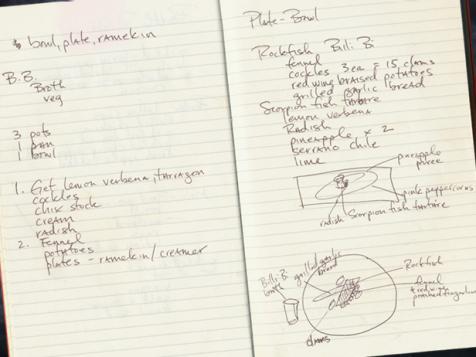 bowl, plate, ramekin
B.B.
Broth
veg
3 pots
1 pan
1 bowl
1. Get lemon verbena, tarragon
cockles
chix stock
cream
radish
2. Fennel
potatoes
plates - ramekin/creamer
Plate - Bowl
Rockfish, Billi Bi
fennel
cockles 3 ea = 15 clams
red wine braised potatoes
grilled garlic bread
Scorpion fish tartare
lemon verbena
Radish
pineapple x 2
serrano chile
lime
pineapple
puree
pink peppercorns
radish Scorpion fish tartare
Billi-Bi
grilled garlic
bread
Rockfish
fennel
+ red wine
clams